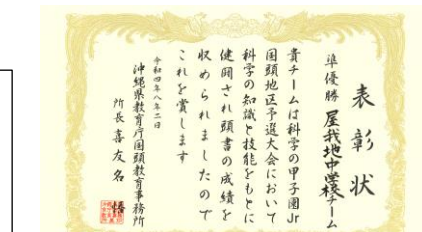 表彰状
準優勝 屋我地中学校チーム
貴チームは科学の甲子園Jr
国頭地区予選大会において
科学の知識と技能をもとに
健闘され頭書の成績を
収められましたので
これを賞します
令和四年八年二日
沖縄県教育庁国頭教育事務所
所長 喜友名